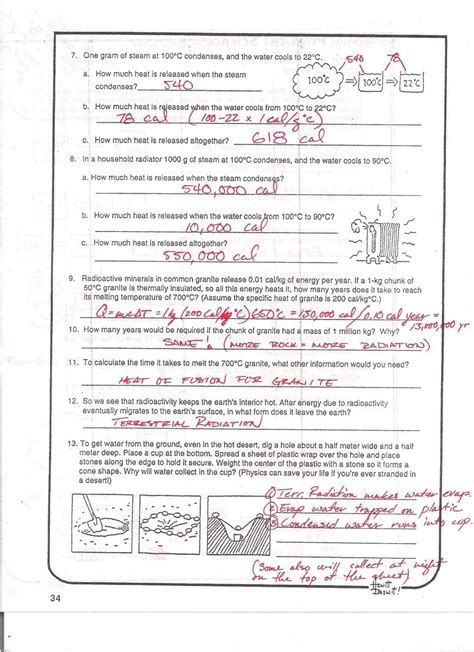 7. One gram of steam at 100°C condenses, and the water cools to 22°C.
540 78
100°C 100°C 22°C
a. How much heat is released when the steam
condenses? 540
b. How much heat is released when the water cools from 100°C to 22°C?
78 cal (100-22 x 1 cal/g°C)
c. How much heat is released altogether? 618 cal
8. In a household radiator 1000 g of steam at 100°C condenses, and the water cools to 90°C.
a. How much heat is released when the steam condenses?
540,000 cal
b. How much heat is released when the water cools from 100°C to 90°C?
10,000 cal
c. How much heat is released altogether?
550,000 cal
9. Radioactive minerals in common granite release 0.01 cal/kg of energy per year. If a 1-kg chunk of
50°C granite is thermally insulated, so all this energy heats it, how many years does it take to reach
its melting temperature of 700°C? (Assume the specific heat of granite is 200 cal/kg°C.)
Q = mcΔT = 1 kg (200 cal/kg°C) 650°C = 130,000 cal / 0.10 cal year =
13,000,000 yr
10. How many years would be required if the chunk of granite had a mass of 1 million kg? Why?
SAME! (MORE ROCK = MORE RADIATION)
11. To calculate the time it takes to melt the 700°C granite, what other information would you need?
HEAT OF FUSION FOR GRANITE
12. So we see that radioactivity keeps the earth's interior hot. After energy due to radioactivity
eventually migrates to the earth's surface, in what form does it leave the earth?
TERRESTRIAL RADIATION
13. To get water from the ground, even in the hot desert, dig a hole about a half meter wide and a half
meter deep. Place a cup at the bottom. Spread a sheet of plastic wrap over the hole and place
stones along the edge to hold it secure. Weight the center of the plastic with a stone so it forms a
cone shape. Why will water collect in the cup? (Physics can save your life if you're ever stranded in
a desert!)
① Terr. Radiation makes water evap.
② Evap water trapped on plastic
③ Condensed water runs into cup.
(Some also will collect at night
on the top of the sheet)
34